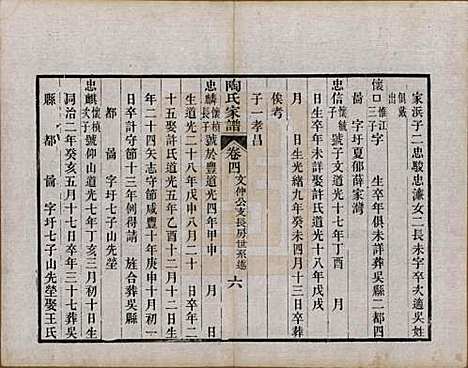 家浜子二忠駿忠濂女二長未字卒次適吳
俱戴
出
懷口維江三子 生卒年俱未詳葬吳縣二都四
啚 字圩夏郁薛家灣
忠信懷毓子 子文道光十七年丁酉 月
日 時生卒年未詳娶許氏道光十八年戊戌
月 日生光緒九年癸未四月十三日卒葬
俟考
子一孝昌
陶氏家譜 卷四 文仲公支長房世系述 六
忠麟懷楨長子 號於豐道光四年甲申 月 日
生道光二十八年戊申八月二十 日卒年二
十五娶許氏道光五年乙酉十二月十二日生
年二十四矢志守節咸豐十年庚申十月初一
日卒計守節十三年例得請 旌合葬吳縣
都 啚 字圩七子山先塋
忠麒懷楨次子 號仰山道光七年丁亥三月初十日生
同治二年癸亥五月十七日卒年三十七葬吳
縣 都 啚 字圩七子山先塋娶王氏